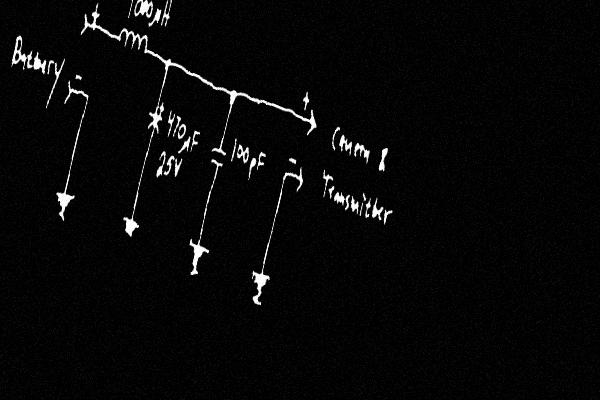 1000µH
+
Battery
-
+
470µF
25V
100pF
+
-
Camera &
Transmitter